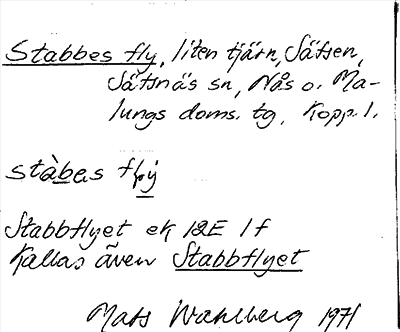 Stabbes fly, liten tjärn, Säfsen,
Säfsnäs sn, Nås o. Ma-
lungs doms. tg, Kopp. l.
stàbas flỳ
Stabbflyet ek 12E 1f
Kallas även Stabbflyet
Mats Wahlberg 1971